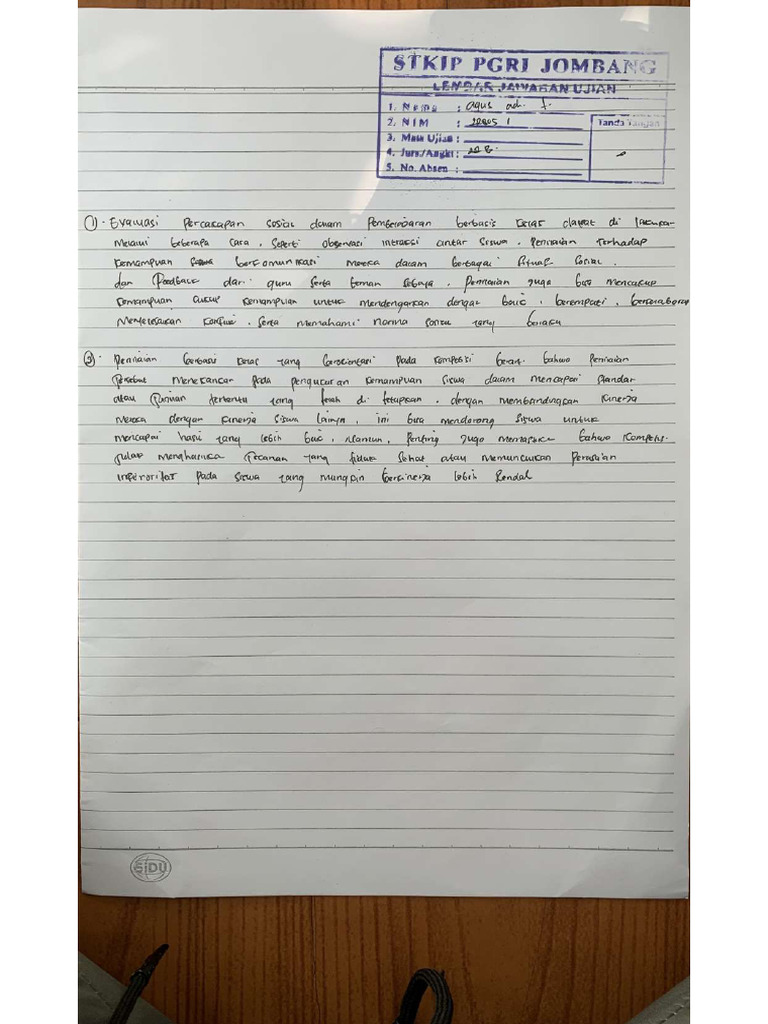 STKIP PGRI JOMBANG
LEMBAR JAWABAN UJIAN
1. Nama : agus adi f.
2. NIM :
Tanda Tangan
3. Mata Ujian :
4. Jurs./Angkt :
5. No. Absen :
① . Evaluasi Percakapan sosial dalam Pembelajaran berbasis kelas dapat di lakukan
melalui beberapa cara, seperti observasi interaksi antar siswa, Penilaian terhadap
kemampuan berkomunikasi mereka dalam berbagai situasi sosial,
dan Feedback dari guru serta teman sebaya, Penilaian juga bisa mencakup
kemampuan untuk mendengarkan dengan baik, berempati,
Menyelesaikan konflik, serta memahami norma sosial yang berlaku
② . Penilaian berbasis kelas yang berorientasi pada kompetisi berarti bahwa Penilaian
tersebut menekankan pada pengukuran kemampuan siswa dalam mencapai standar
atau tujuan tertentu yang telah di tetapkan, dengan membandingkan kinerja
mereka dengan kinerja siswa lainya, ini bisa mendorong siswa untuk
mencapai hasil yang lebih baik, Namun, Penting juga bahwa
tekanan yang tidak sehat atau memunculkan Perasaan
pada siswa yang mungkin berkinerja lebih Rendah
SIDU